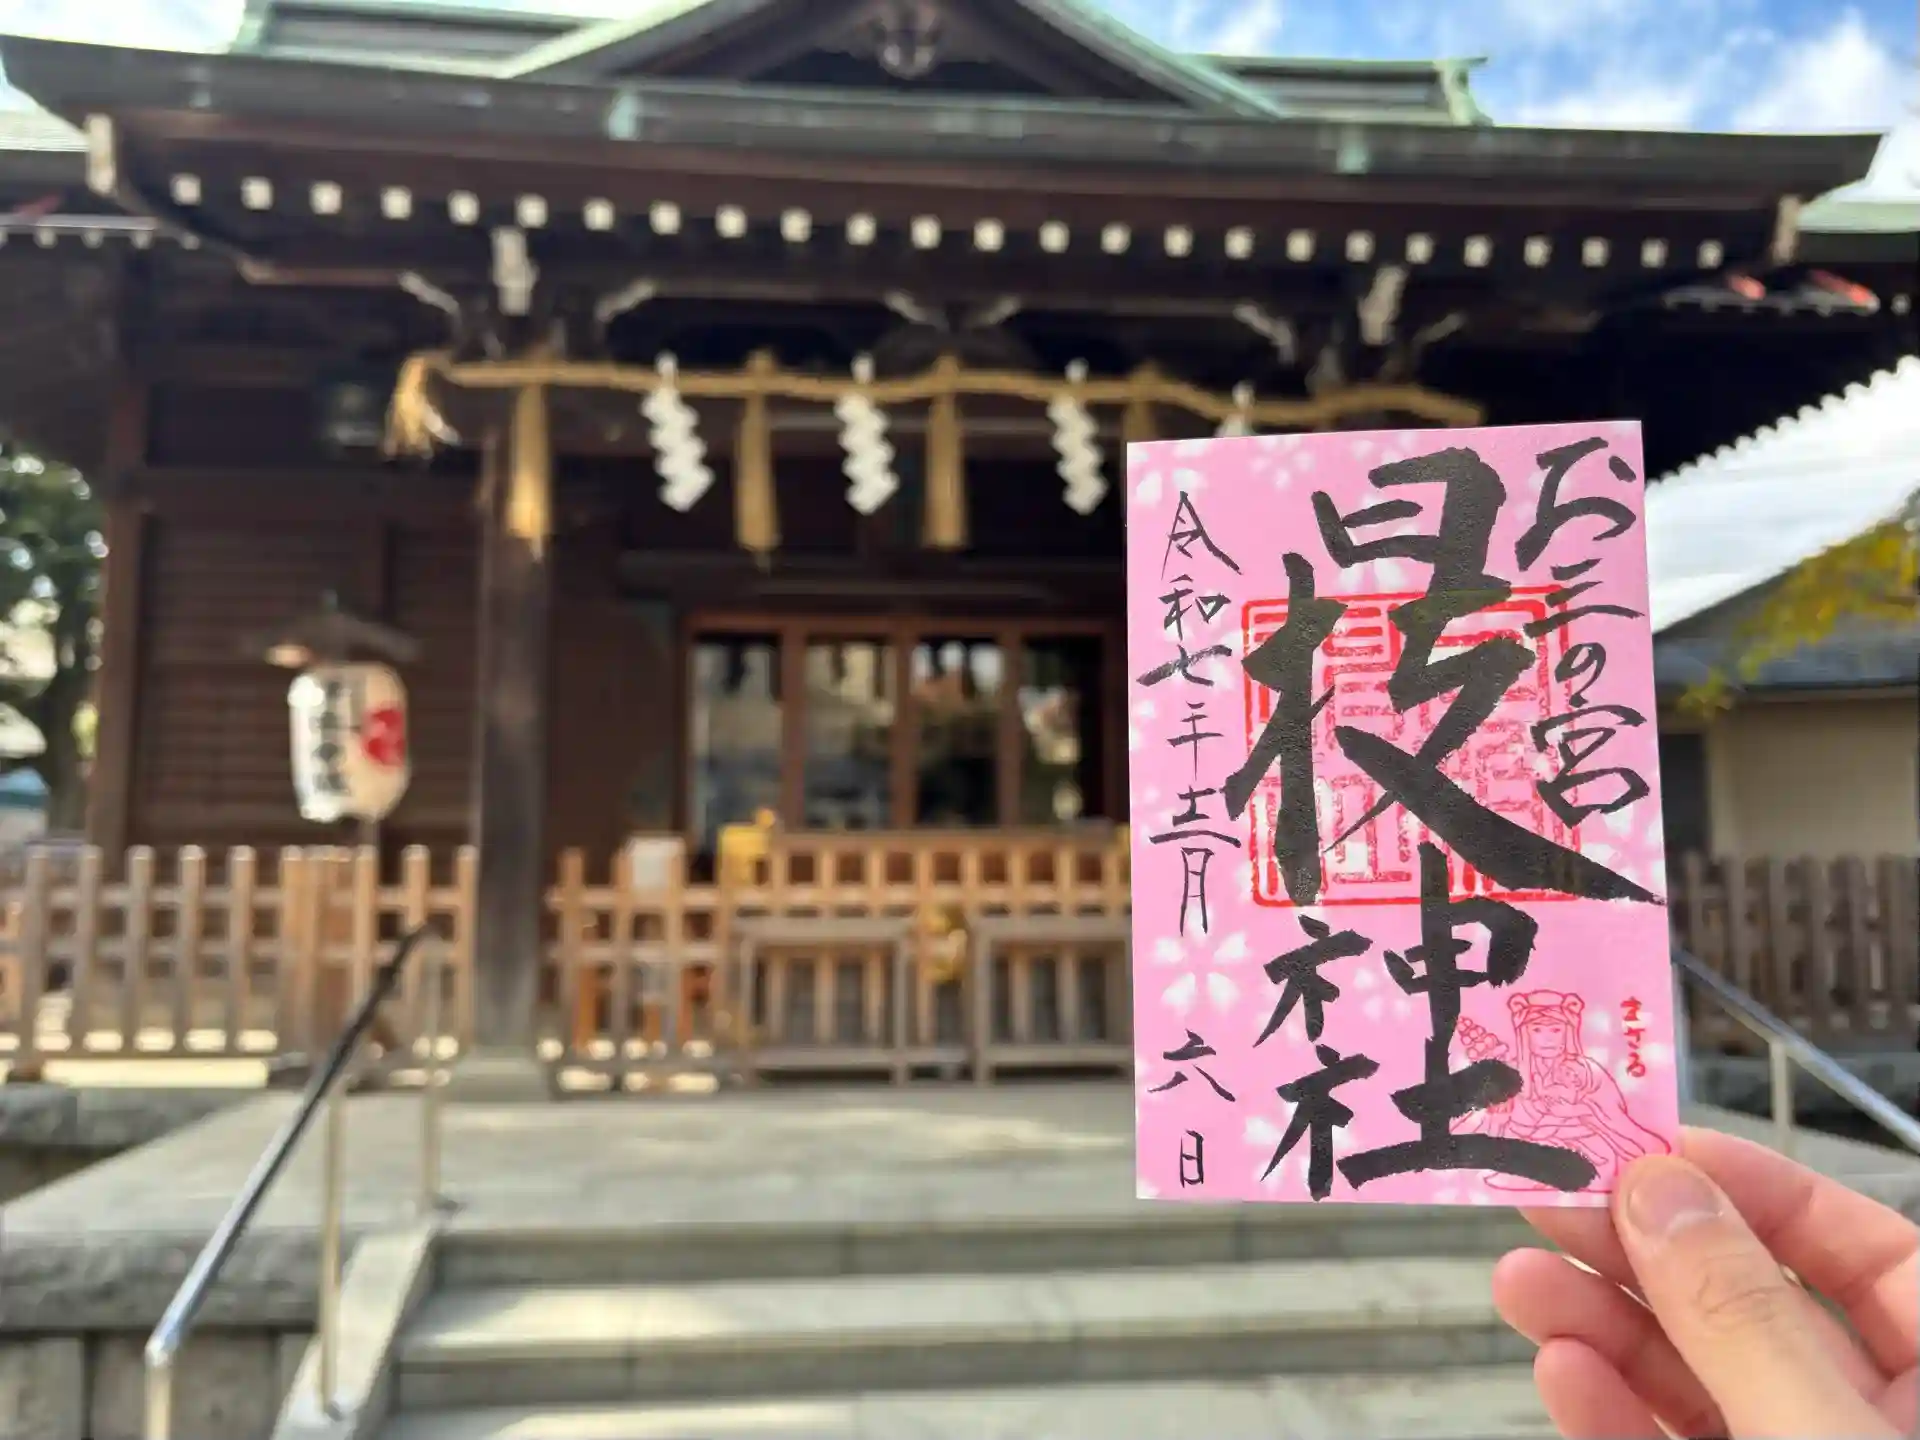 お三の宮
日枝神社
まさる
令和七年十二月六日